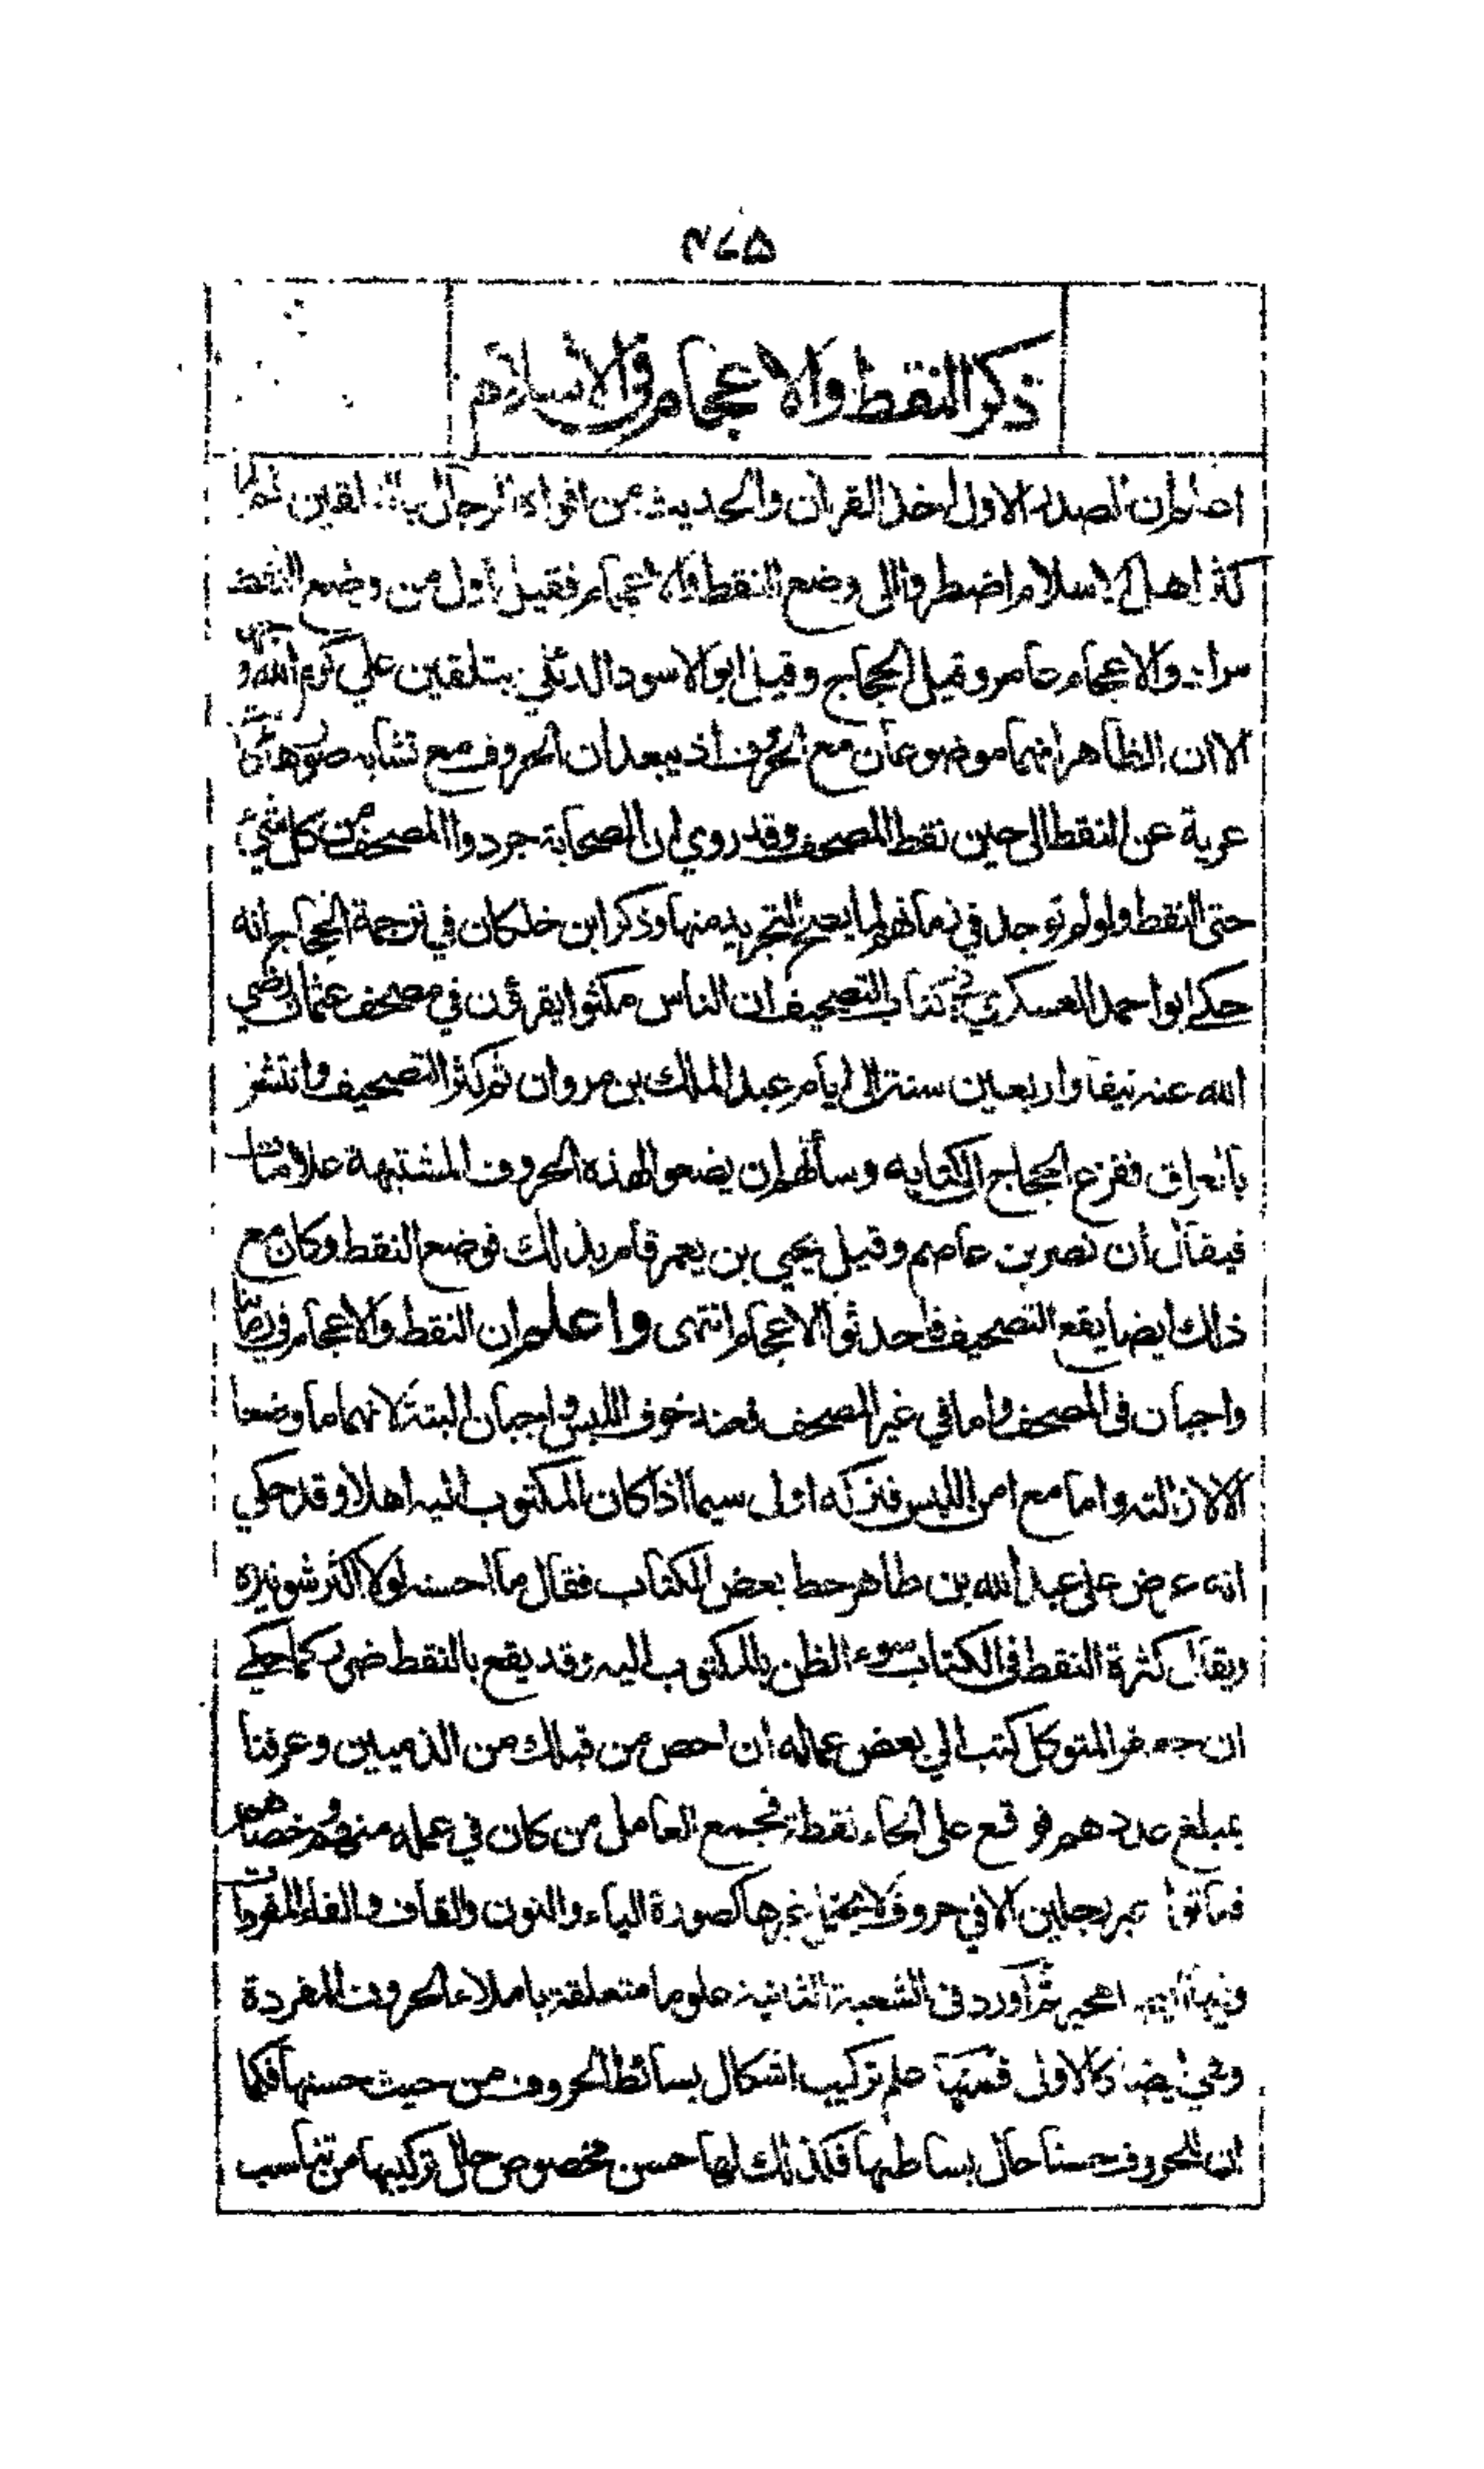 ٤٧٥
ذكر النقط والاعجام في الاسلام
اعلم ان الصدر الاول اخذ القرآن والحديث من افواه الرجال بالتلقين ثم لما
كثر اهل الاسلام اضطروا الى وضع النقط والاعجام فقيل اول من وضع النقط
مرار والاعجام عامر وقيل الحجاج وقيل ابو الاسود الدئلي بتلقين علي كرم الله وجهه
الا ان الظاهر انهما موضوعان مع الحروف اذ يبعد ان الحروف مع تشابه صورها كانت
عرية عن النقط الى حين نقط المصحف وقد روي ان الصحابة جردوا المصحف من كل شيء
حتى النقط ولو لم توجد في زمانهم لما يصح التجريد منها وذكر ابن خلكان في ترجمة الحجاج انه
حكى ابو احمد العسكري في كتاب التصحيف ان الناس مكثوا يقرؤن في مصحف عثمان رضي
الله عنه نيفا واربعين سنة الى ايام عبد الملك بن مروان ثم كثر التصحيف وانتشر
بالعراق ففزع الحجاج الى كتابه وسألهم ان يضعوا لهذه الحروف المشتبهة علامات
فيقال ان نصر بن عاصم وقيل يحيى بن يعمر قام بذلك فوضع النقط وكان مع
ذلك ايضا يقع التصحيف فاحدثوا الاعجام انتهى واعلم ان النقط والاعجام في زماننا
واجبان في المصحف واما في غير المصحف فعند خوف اللبس واجبان البتة لانهما ما وضعا
الا لازالته واما مع امن اللبس فتركه اولى سيما اذا كان المكتوب اليه اهلا وقد حكي
انه عرض على عبد الله بن طاهر خط بعض الكتاب فقال ما احسنه لولا اكثر شونيزه
ويقال كثرة النقط في الكتاب سوء الظن بالمكتوب اليه وقد يقع بالنقط ضرر كما حكي
ان جعفر المتوكل كتب الى بعض عماله ان احص من قبلك من الذميين وعرفنا
بمبلغ عددهم فوقع على الحاء نقطة فجمع العامل من كان في عمله منهم وخصاهم
فماتوا غير رجلين الا في حروف لا يحتمل غيرها كصورة الياء والنون والقاف والفاء المفردات
وفيها ايضا مخير ثم اورد في الشعبة الثانية علوما متعلقة باملاء الحروف المفردة
وهي ايضا كالاولى فمنها علم تركيب اشكال بسائط الحروف من حيث حسنها فكما
ان للحروف حسنا حال بساطتها فكذلك لها حسن مخصوص حال تركيبها من تناسب